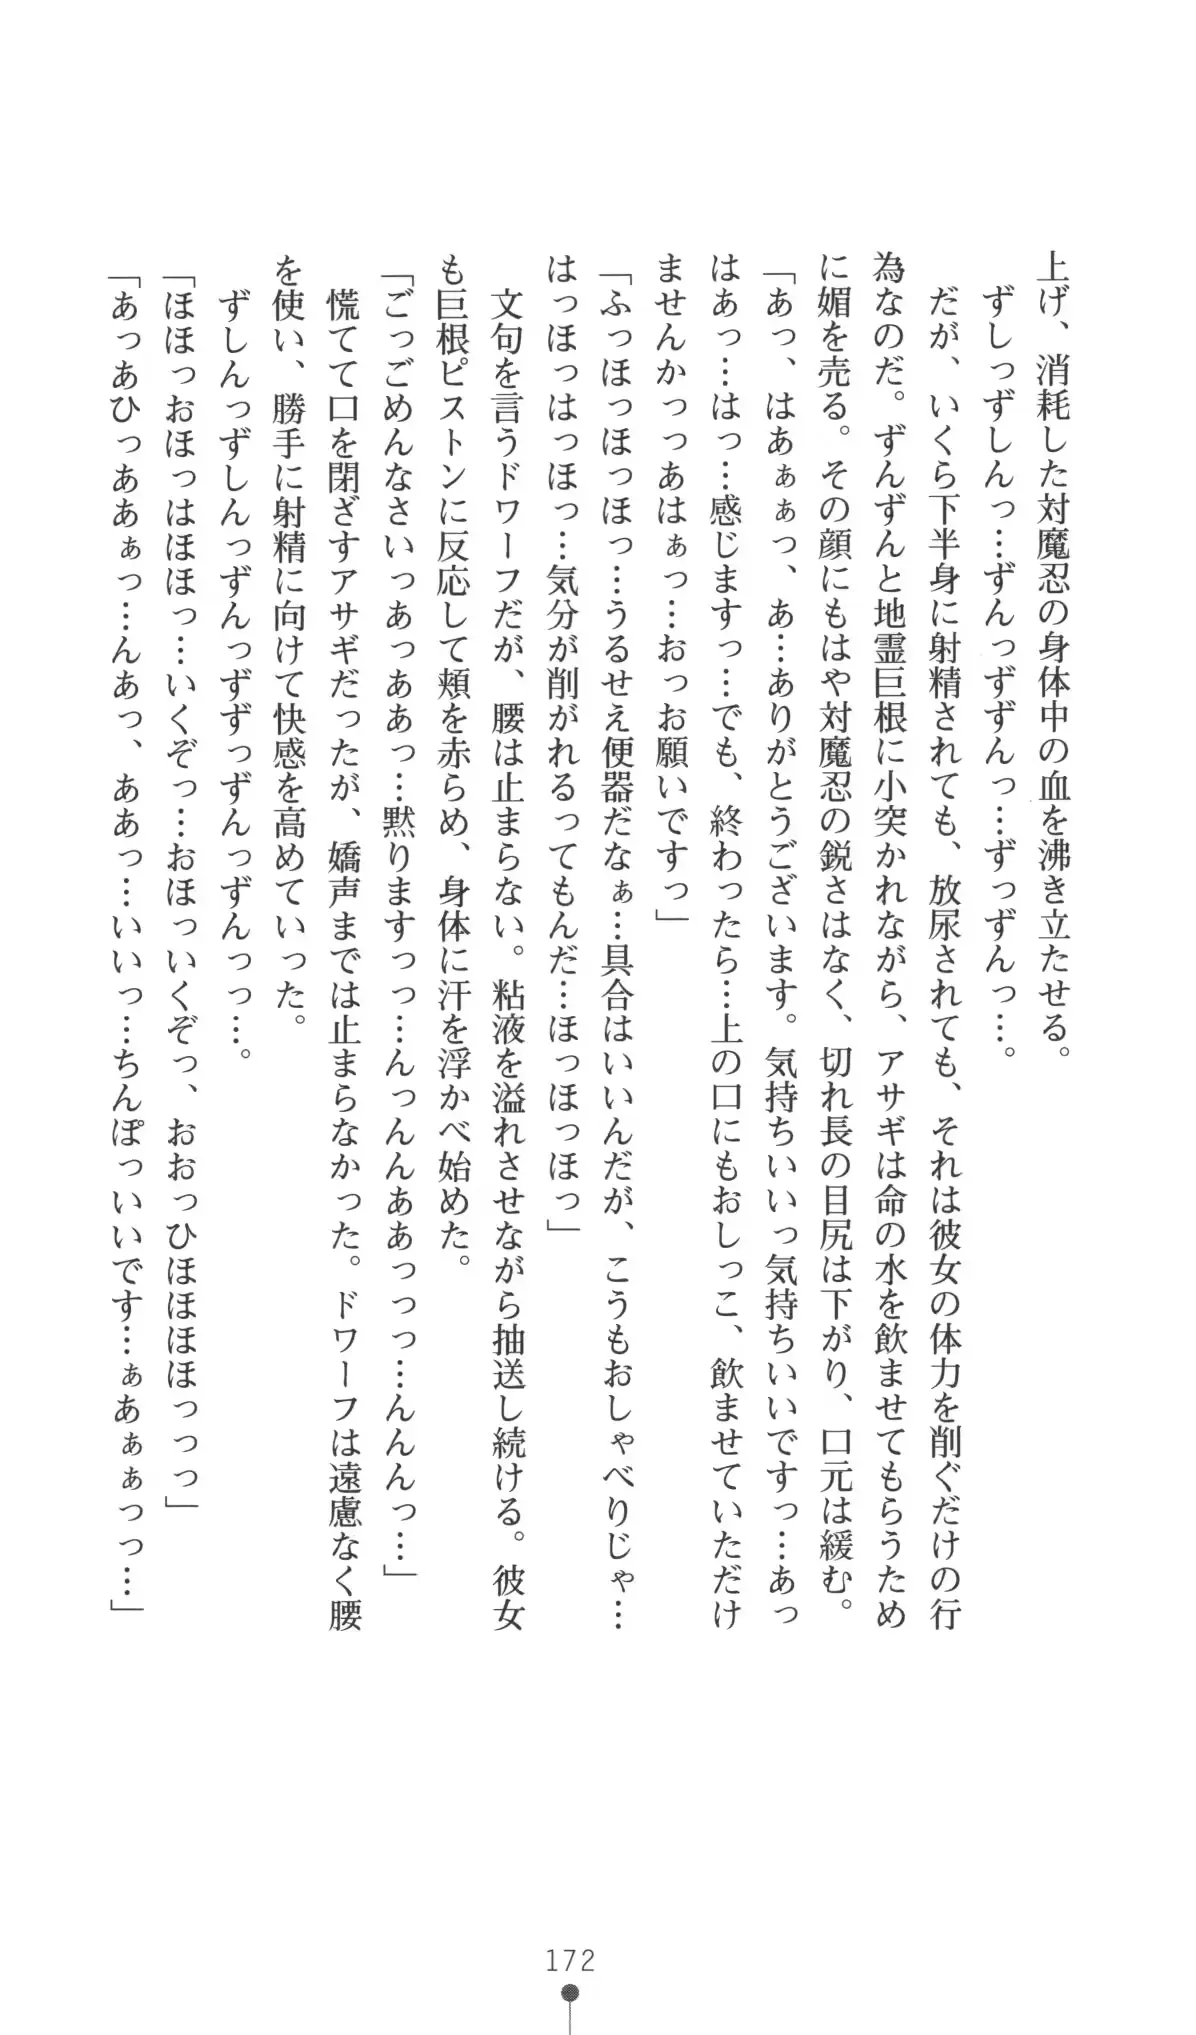 上げ、消耗した対魔忍の身体中の血を沸き立たせる。
ずしっずしんっ…ずんっずずんっ…ずっずんっ…。
だが、いくら下半身に射精されても、放尿されても、それは彼女の体力を削ぐだけの行
為なのだ。ずんずんと地霊巨根に小突かれながら、アサギは命の水を飲ませてもらうため
に媚を売る。その顔にもはや対魔忍の鋭さはなく、切れ長の目尻は下がり、口元は緩む。
「あっ、はあぁぁっ、あ…ありがとうございます。気持ちいいっ気持ちいいですっ…あっ
はあっ…はっ…感じますっ…でも、終わったら…上の口にもおしっこ、飲ませていただけ
ませんかっっあはぁっ…おっお願いですっ」
「ふっほっほっほっ…うるせえ便器だなぁ…具合はいいんだが、こうもおしゃべりじゃ…
はっほっはっほっ…気分が削がれるってもんだ…ほっほっほっ」
文句を言うドワーフだが、腰は止まらない。粘液を溢れさせながら抽送し続ける。彼女
も巨根ピストンに反応して頬を赤らめ、身体に汗を浮かべ始めた。
「ごっごめんなさいっあっああっ…黙りますっっ…んっんんああっっっ…んんんっ…」
慌てて口を閉ざすアサギだったが、嬌声までは止まらなかった。ドワーフは遠慮なく腰
を使い、勝手に射精に向けて快感を高めていった。
ずしんっずしんっずんっずずっずんっずんっっ…。
「ほほっおほっはほほっ…いくぞっ…おほっいくぞっ、おおっひほほほほっっっ」
「あっあひっああぁっ…んあっ、ああっ…いいっ…ちんぽっいいです…ぁあぁぁっっ…」
172